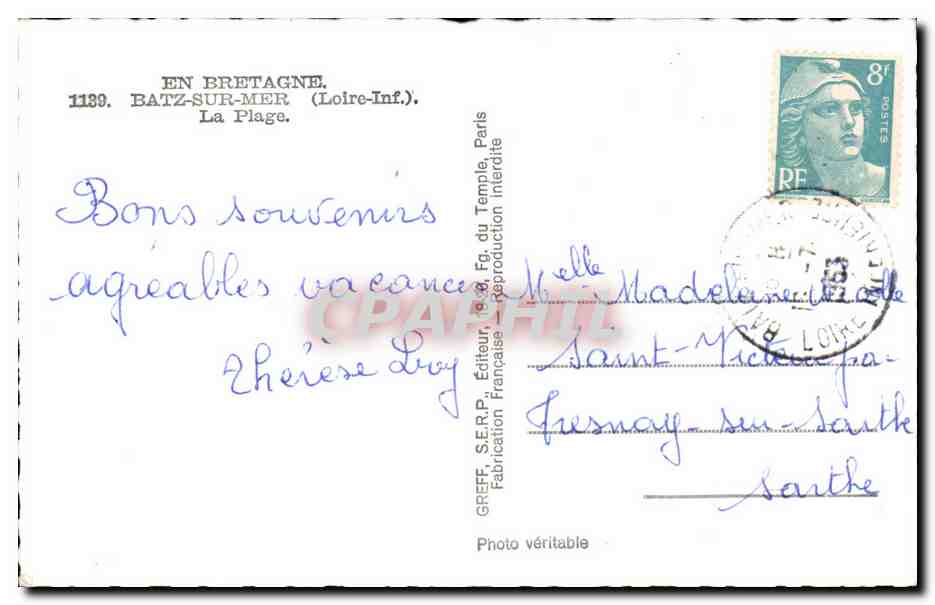 EN BRETAGNE.
1139. BATZ-SUR-MER (Loire-Inf.).
La Plage.
Bons souvenirs
agréables vacances
Thérèse
GREFF, S.E.R.P., Éditeur, Fg. du Temple, Paris
Fabrication Française — Reproduction interdite
Photo véritable
8f
POSTES
RF
1953
LOIRE
Melle Madeleine
Saint-Victeur par
Fresnay-sur-Sarthe
Sarthe
CPAPHIL